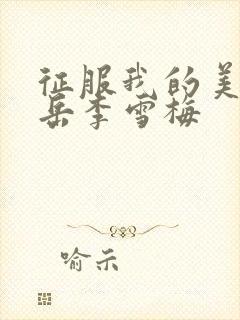 征服我的美
岳李雪梅
喻示